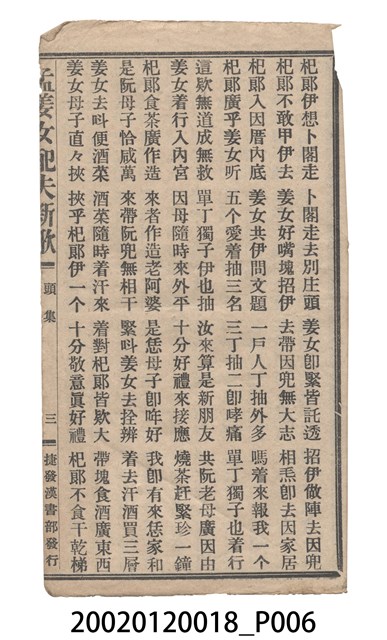 杞郎伊想卜閣走　卜閣走去別庄頭　姜女卽緊皆託透　招伊倣陣去因兜
杞郎不敢甲伊去　姜女好嘴塊招伊　去帶因兜無大志　相𤆬卽去因家居
杞郎入因厝內底　姜女共伊問文題　一戶人丁抽外多　嗎着來報我一个
杞郎廣乎姜女听　五个愛着抽三名　三丁抽二卽哮痛　單丁獨子也着行
這款無道成無救　單丁獨子伊也抽　汝來算是新朋友　共阮老母廣因由
姜女着行入內宮　因母隨時來外平　十分好禮來接應　燒茶赶緊珍一鐘
杞郎食茶廣作造　來者作造老阿婆　是恁母子卽咋好　我卽有來恁家和
是阮母子恰咸萬　來帶阮兜無相干　緊叫姜女去拴辨　着去汗酒買三層
姜女去叫便酒菜　酒菜隨時着汗來　着對杞郎皆欵大　帶塊食酒廣東西
姜女母子直々挾　挾乎杞郎伊一个　十分敬意眞好禮　杞郎不食干乾梯
孟姜女配夫新歌　頭集　三　捷發漢書部發行
20020120018_P006